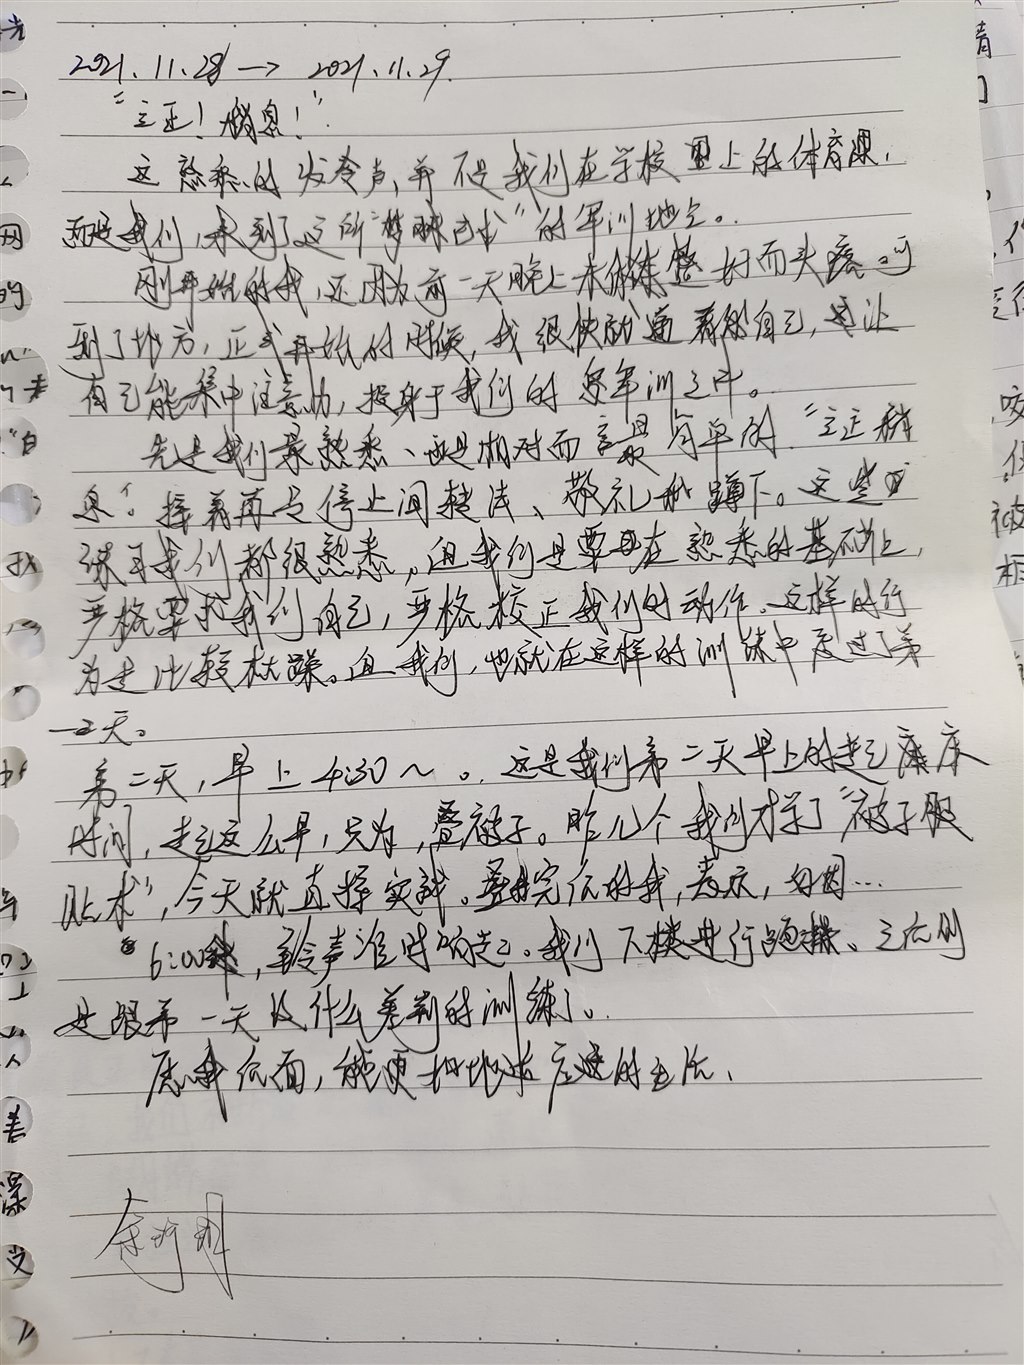 2021.11.28 → 2021.11.29.
"立正！稍息！"
这熟悉的发冷声,并不是我们在学校里上的体育课，
而是我们,来到了这所"梦"的军训地点。
刚开始的我,还因为前一天晚上未休整好而头疼。可
到了地方,正式开始的时候,我很快就调着自己,
自己能集中注意力,投身于我们的军训之中。
先是我们最熟悉、也是相对而言最简单的"立正稍
息"。接着再是停止间转法、敬礼和蹲下。这些
练习我们都很熟悉。但我们是要在熟悉的基础上,
严格要求我们自己,严格校正我们的动作.这样的行
为是比较枯躁。但我们,也就在这样的训练中度过了第
一天。
第二天,早上4:30～。这是我们第二天早上的起床
时间,起这么早,只为,叠被子。昨儿个我们才学了"被子服
贴术",今天就直接实战。叠完后的我,表示,好困…
6:00,铃声准时响起。我们下楼进行跑操、之后则
是跟第一天没什么差别的训练了。
愿我后面,能更好地去应这的生活.